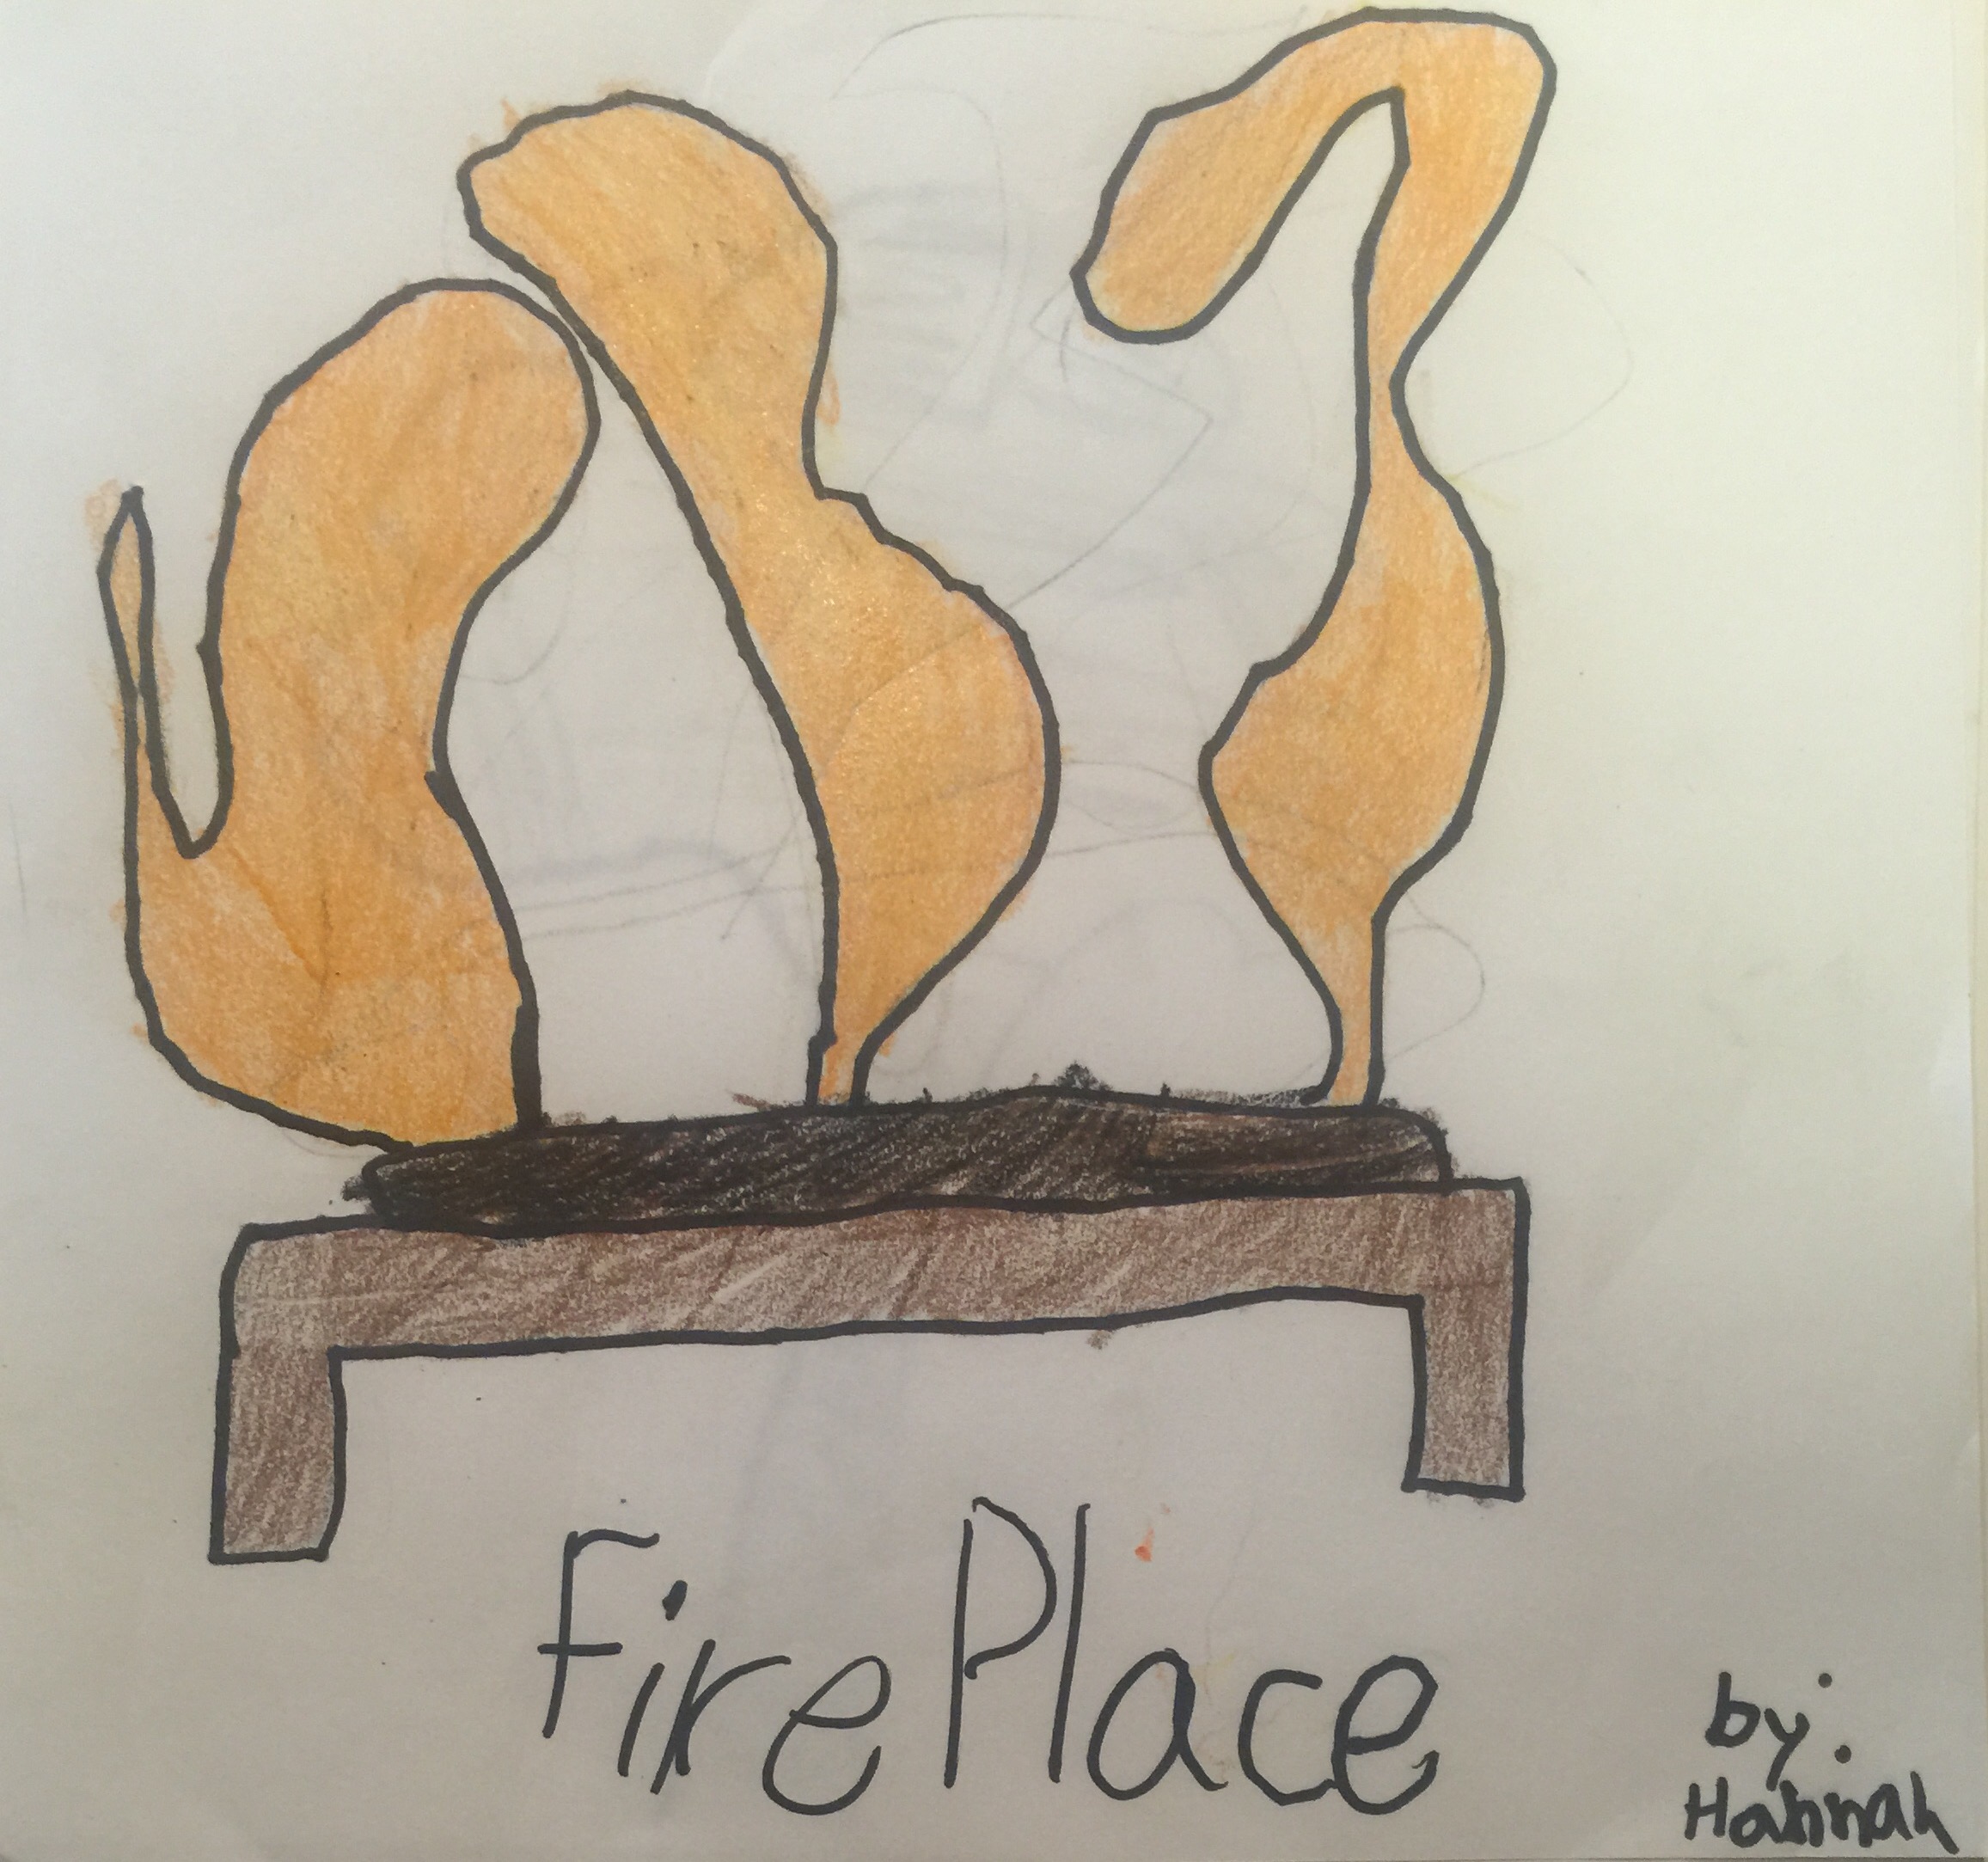 FirePlace
by:
Hannah